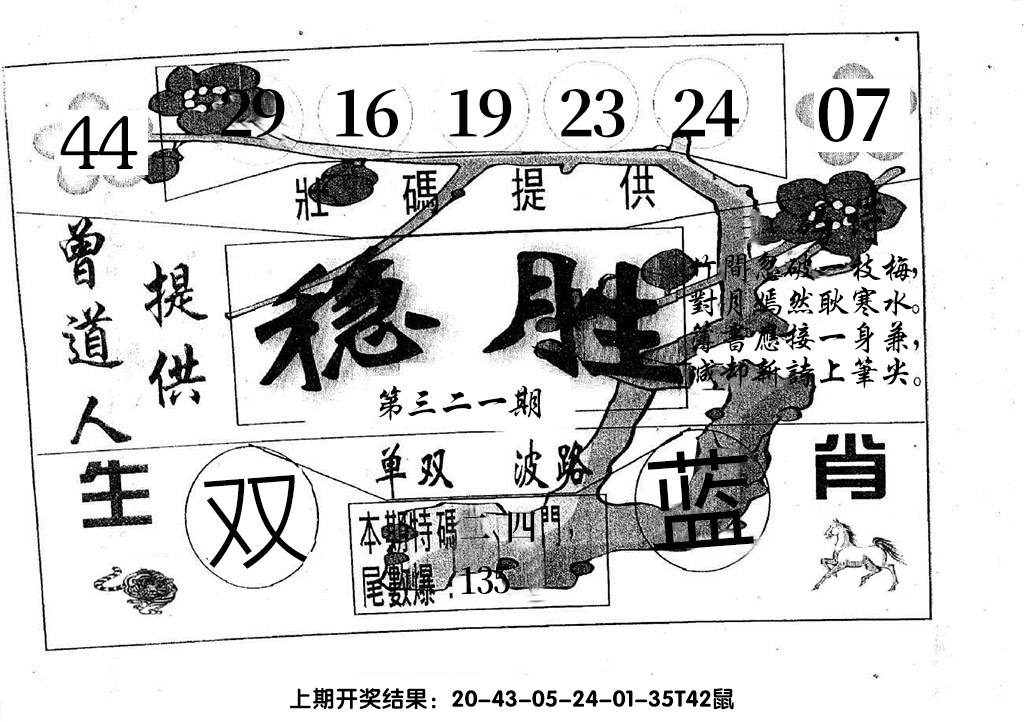 44 29 16 19 23 24 07
壯碼提供
曾道人
提供
稳胜
第三二一期
竹間忽破一枝梅，
對月嫣然耿寒水。
薄書應接一身兼，
减却新詩上筆尖。
单双 波路
生肖
双
蓝
本期特碼二、四門，
尾數爆：135
上期开奖结果：20-43-05-24-01-35T42鼠